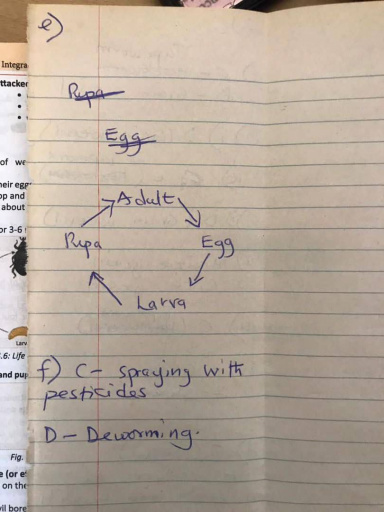 e)
Integra
ttacked
of we
heir egg
op and
about
or 3-6
Pupa
Egg
Adult
Pupa
Egg
Larva
Larv
.6: Life
and pup
f) C - spraying with
pesticides
D - Deworming.
Fig.
e (or e
on the
vil bore